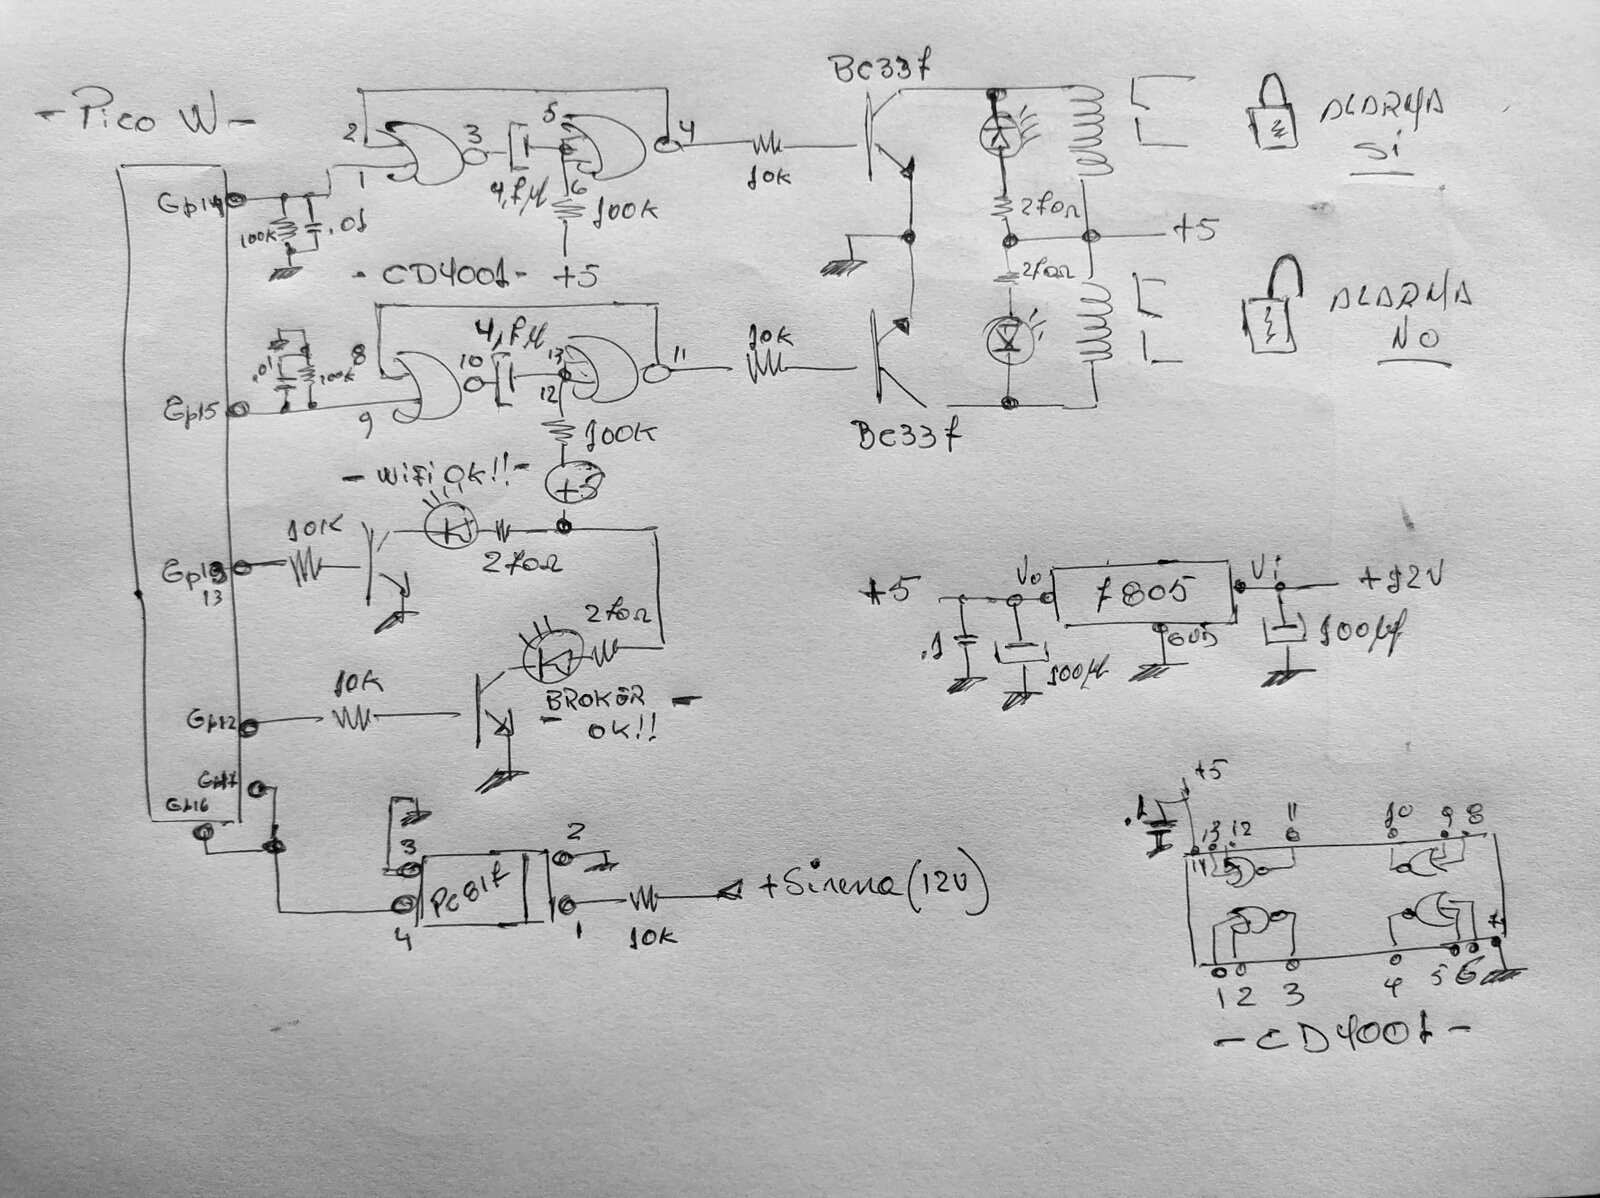 - Pico W -
BC337
2
3
5
4
1
4,7µ
6
10K
ALARMA
Si
Gp14
100K
.01
100K
270Ω
+5
- CD4001 -
+5
270Ω
ALARMA
NO
4,7µ
8
10
13
11
10K
.01
100K
12
Gp15
9
100K
BC337
- WiFi OK!! -
+5
10K
270Ω
Gp13
13
+5
Vo
7805
Vi
+12V
.1
100µ
100µf
270Ω
10K
BROKER
- OK!! -
Gp12
Gp17
Gp16
3
2
PC817
4
1
10K
+Sirena (12V)
+5
.1
14
13
12
11
10
9
8
1
2
3
4
5
6
7
- CD4001 -